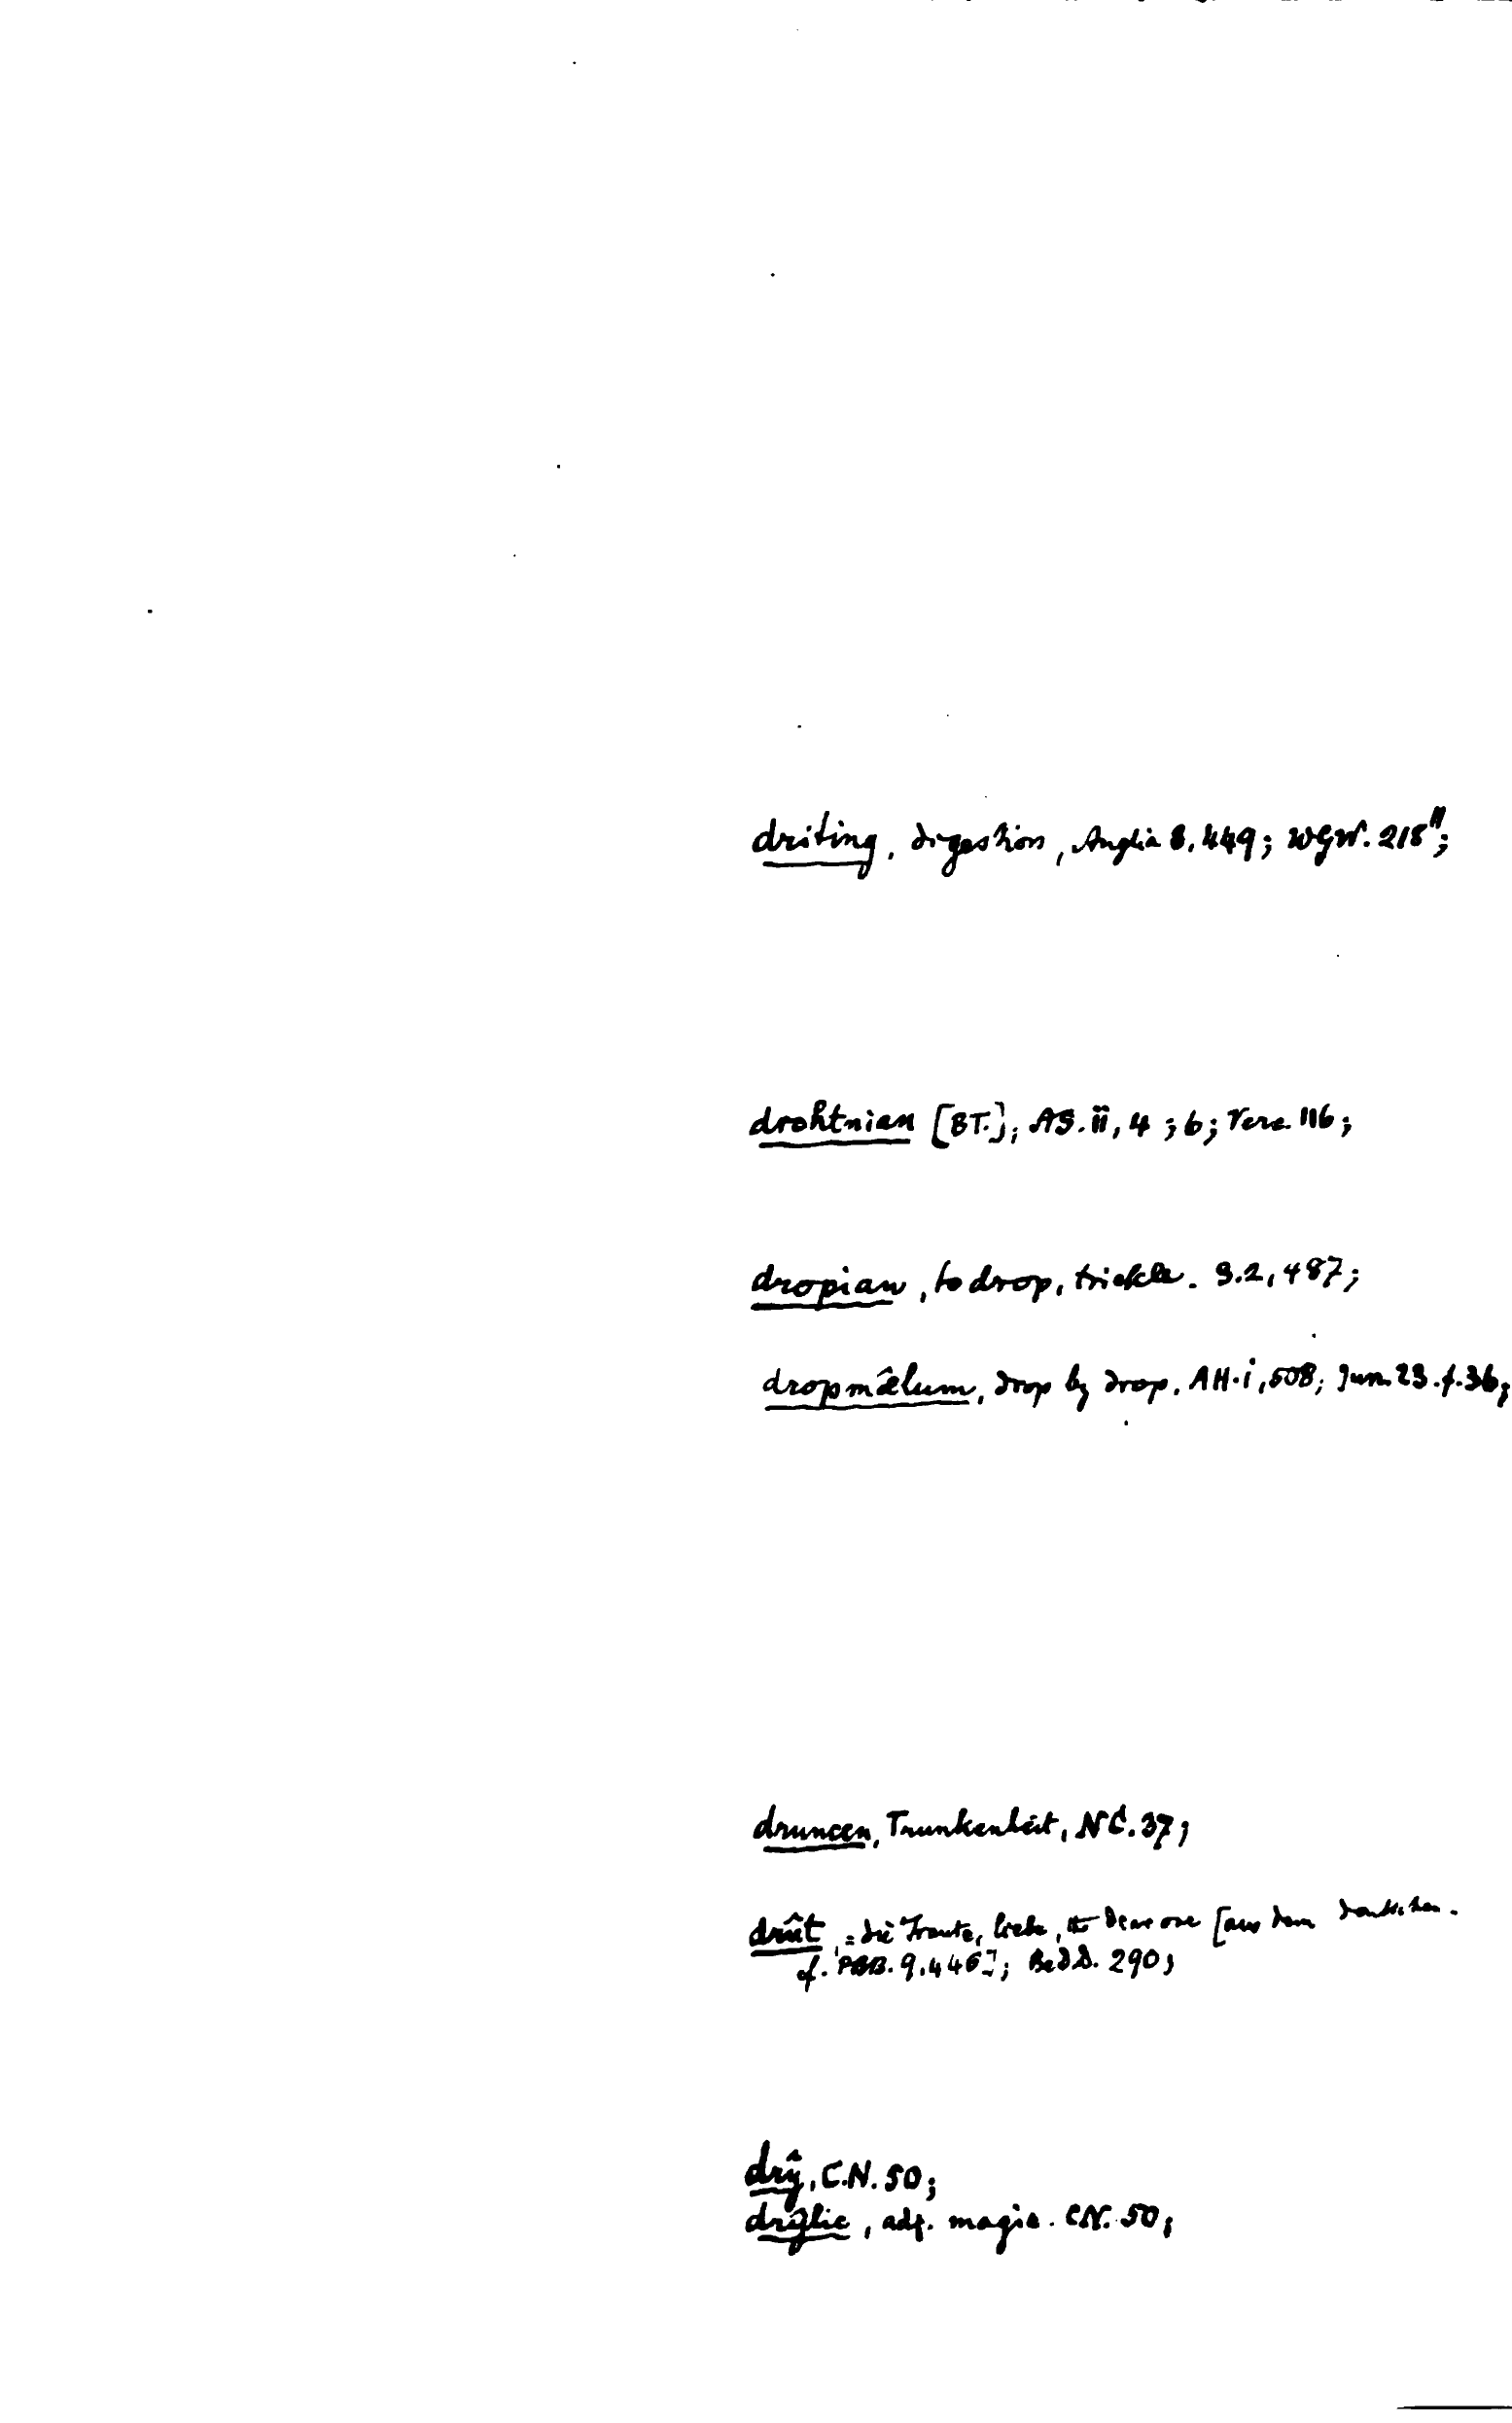 driting, digestion, Anglia 8, 449; WGW. 218";
drohtnian [BT.]; AS. ii, 4; 6; Verc. 116;
dropian, to drop, trickle. S.2, 487;
dropmâelum, drop by drop. AH. i, 508; Jun. 23. f. 36;
druncen, Trunkenheit, NC. 37;
drût, = die Traute, liebe, the dear one [aus dem Deutschen.
cf. PBB. 9, 446]; BedS. 290;
drŷ, C.N. 50;
drŷlic, adj. magic. CN. 50;